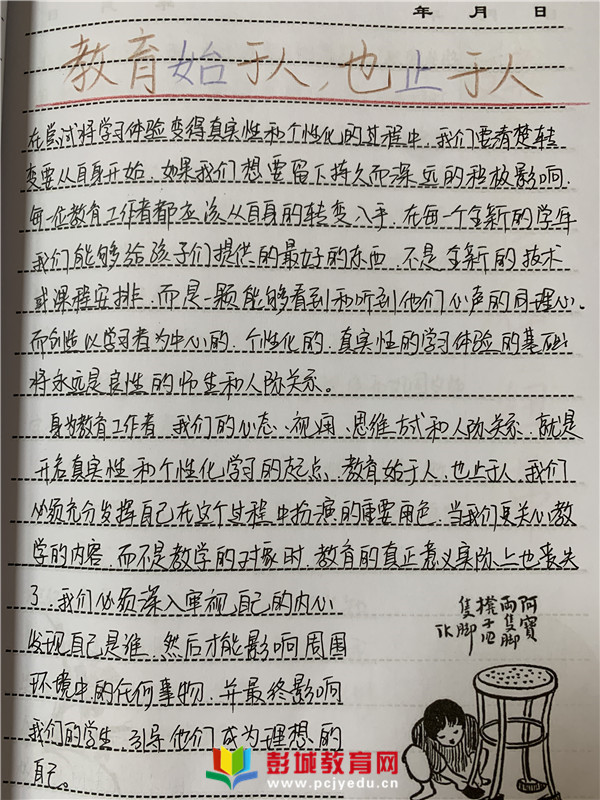 年 月 日
教育始于人，也止于人
在尝试将学习体验变得真实性和个性化的过程中，我们要看楚转
变要从自身开始。如果我们想要留下持久而深远的积极影响，
每一位教育工作者都应该从自身的转变入手。在每一个全新的学年
我们能够给孩子们提供的最好的东西，不是全新的技术
或课程安排，而是一颗能够看到和听到他们心声的同理心。
而创造以学习者为中心的、个性化的、真实性的学习体验的基础
将永远是良性的师生和人际关系。
身为教育工作者，我们的心态、视角、思维方式和人际关系，就是
开启真实性和个性化学习的起点。教育始于人，也止于人，我们
必须充分发挥自己在这个过程中扮演的重要角色。当我们更关心教
学的内容，而不是教学的对象时，教育的真正意义实际上也丧失
了。我们必须深入审视自己的内心
发现自己是谁，然后才能影响周围
环境中的任何事物，并最终影响
我们的学生，引导他们成为理想的
自己。
阿寶
兩隻腳
櫈子四
隻腳
TK
彭城教育网
www.pcjyedu.cn